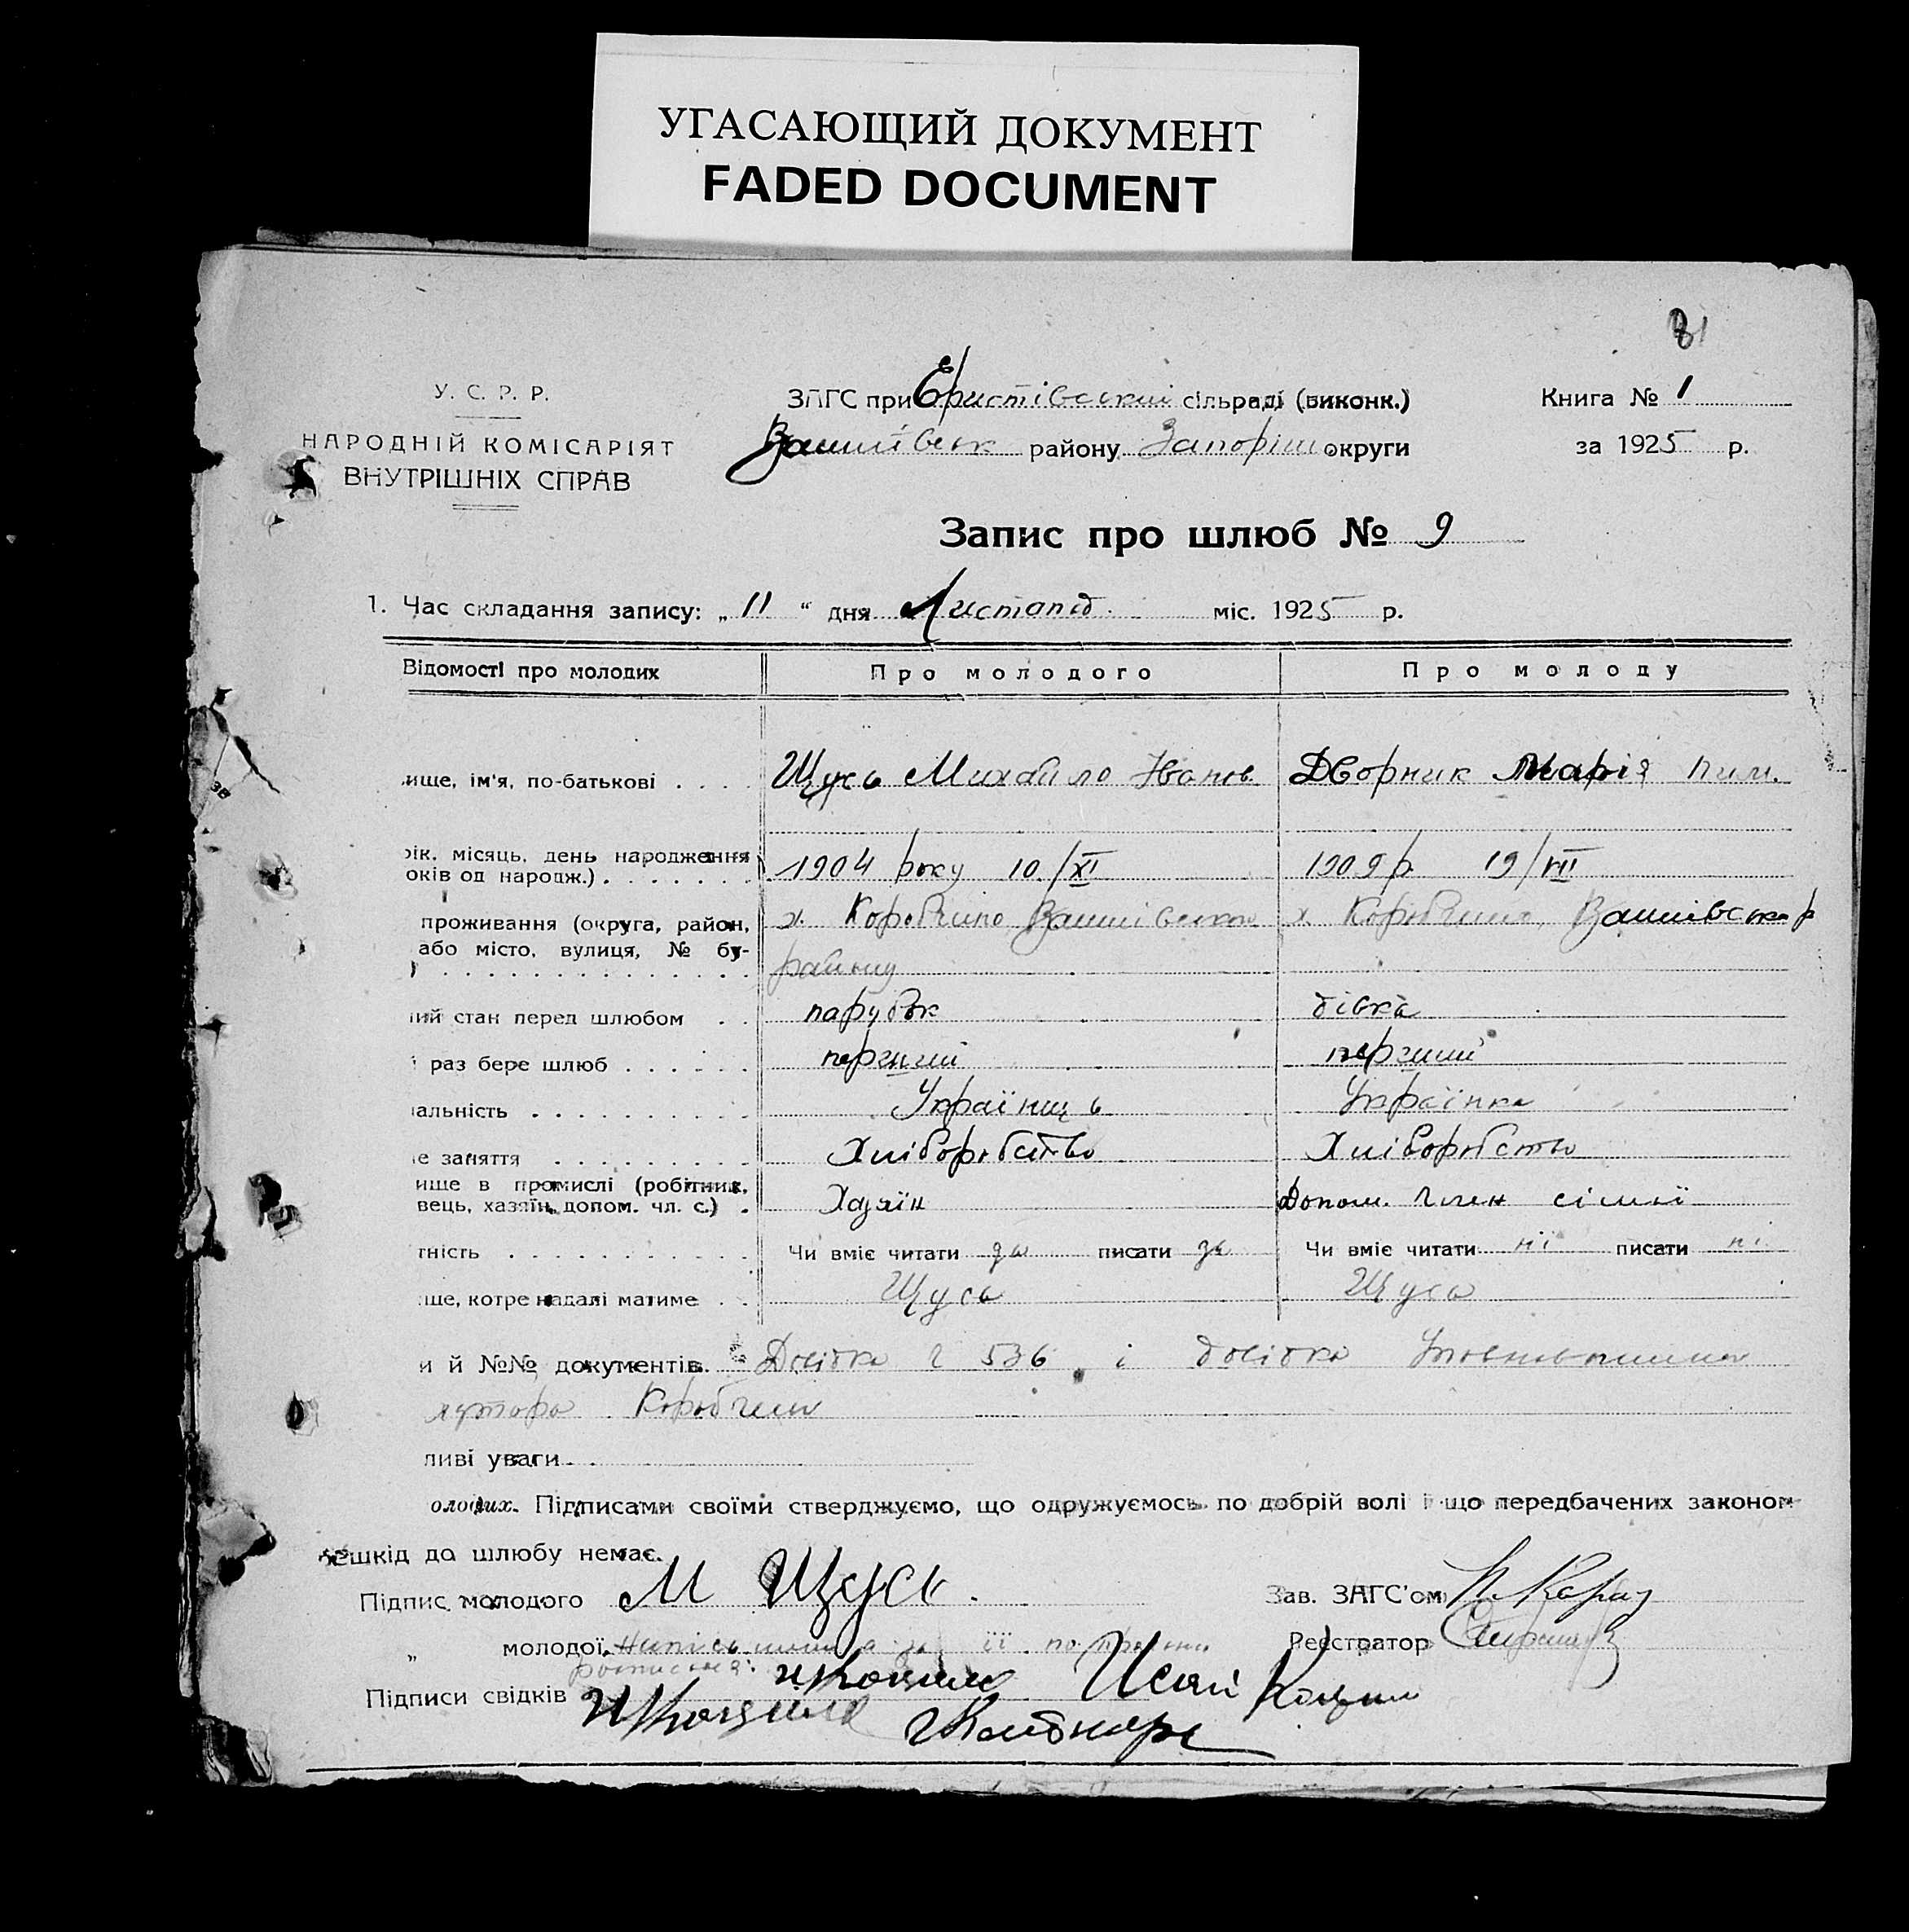 УГАСАЮЩИЙ ДОКУМЕНТ
FADED DOCUMENT
31
У. С. Р. Р.
НАРОДНІЙ КОМІСАРІЯТ
ВНУТРІШНІХ СПРАВ
ЗАГС при Єристівській сільраді (виконк.)
району Запоріш округи
Книга № 1
за 1925 р.
Запис про шлюб № 9
1. Час складання запису: „ 11 “ дня Листопад міс. 1925 р.
Відомості про молодих Про молодого Про молоду
ище, ім'я, по-батькові . . . . Щусь Михайло Іванов. Дворник Марія Пил.
зв
рік, місяць, день народження
оків од народж.) . . . . . . . 1904 року 10/XI 1909 р. 19/VII
проживання (округа, район, х. Коробчино х. Коробчино,
або місто, вулиця, № бу-
) . . . . . . . . . . . . . . району
ий стан перед шлюбом . . парубок дівка
раз бере шлюб . . . . . . перший перший
альність . . . . . . . . . . Українць Українка
е заняття . . . . . . . . . Хліборобство Хліборобство
ище в промислі (робітник,
вець, хазяїн, допом. чл. с.) . Хазяїн Допом. член сімьї
тність . . . . . . . . . . . Чи вміє читати да писати да Чи вміє читати ні писати ні
ще, котре надалі матиме . . Щусь Щусь
и й №№ документів. Довідка Ч 536 і довідка
хутора Коробчино
ливі уваги.
олодих. Підписами своїми стверджуємо, що одружуємось по добрій волі і що передбачених законом
решкід до шлюбу немає.
Підпис молодого М Щусь. Зав. ЗАГС'ом
„ молодої за її Реєстратор
Підписи свідків